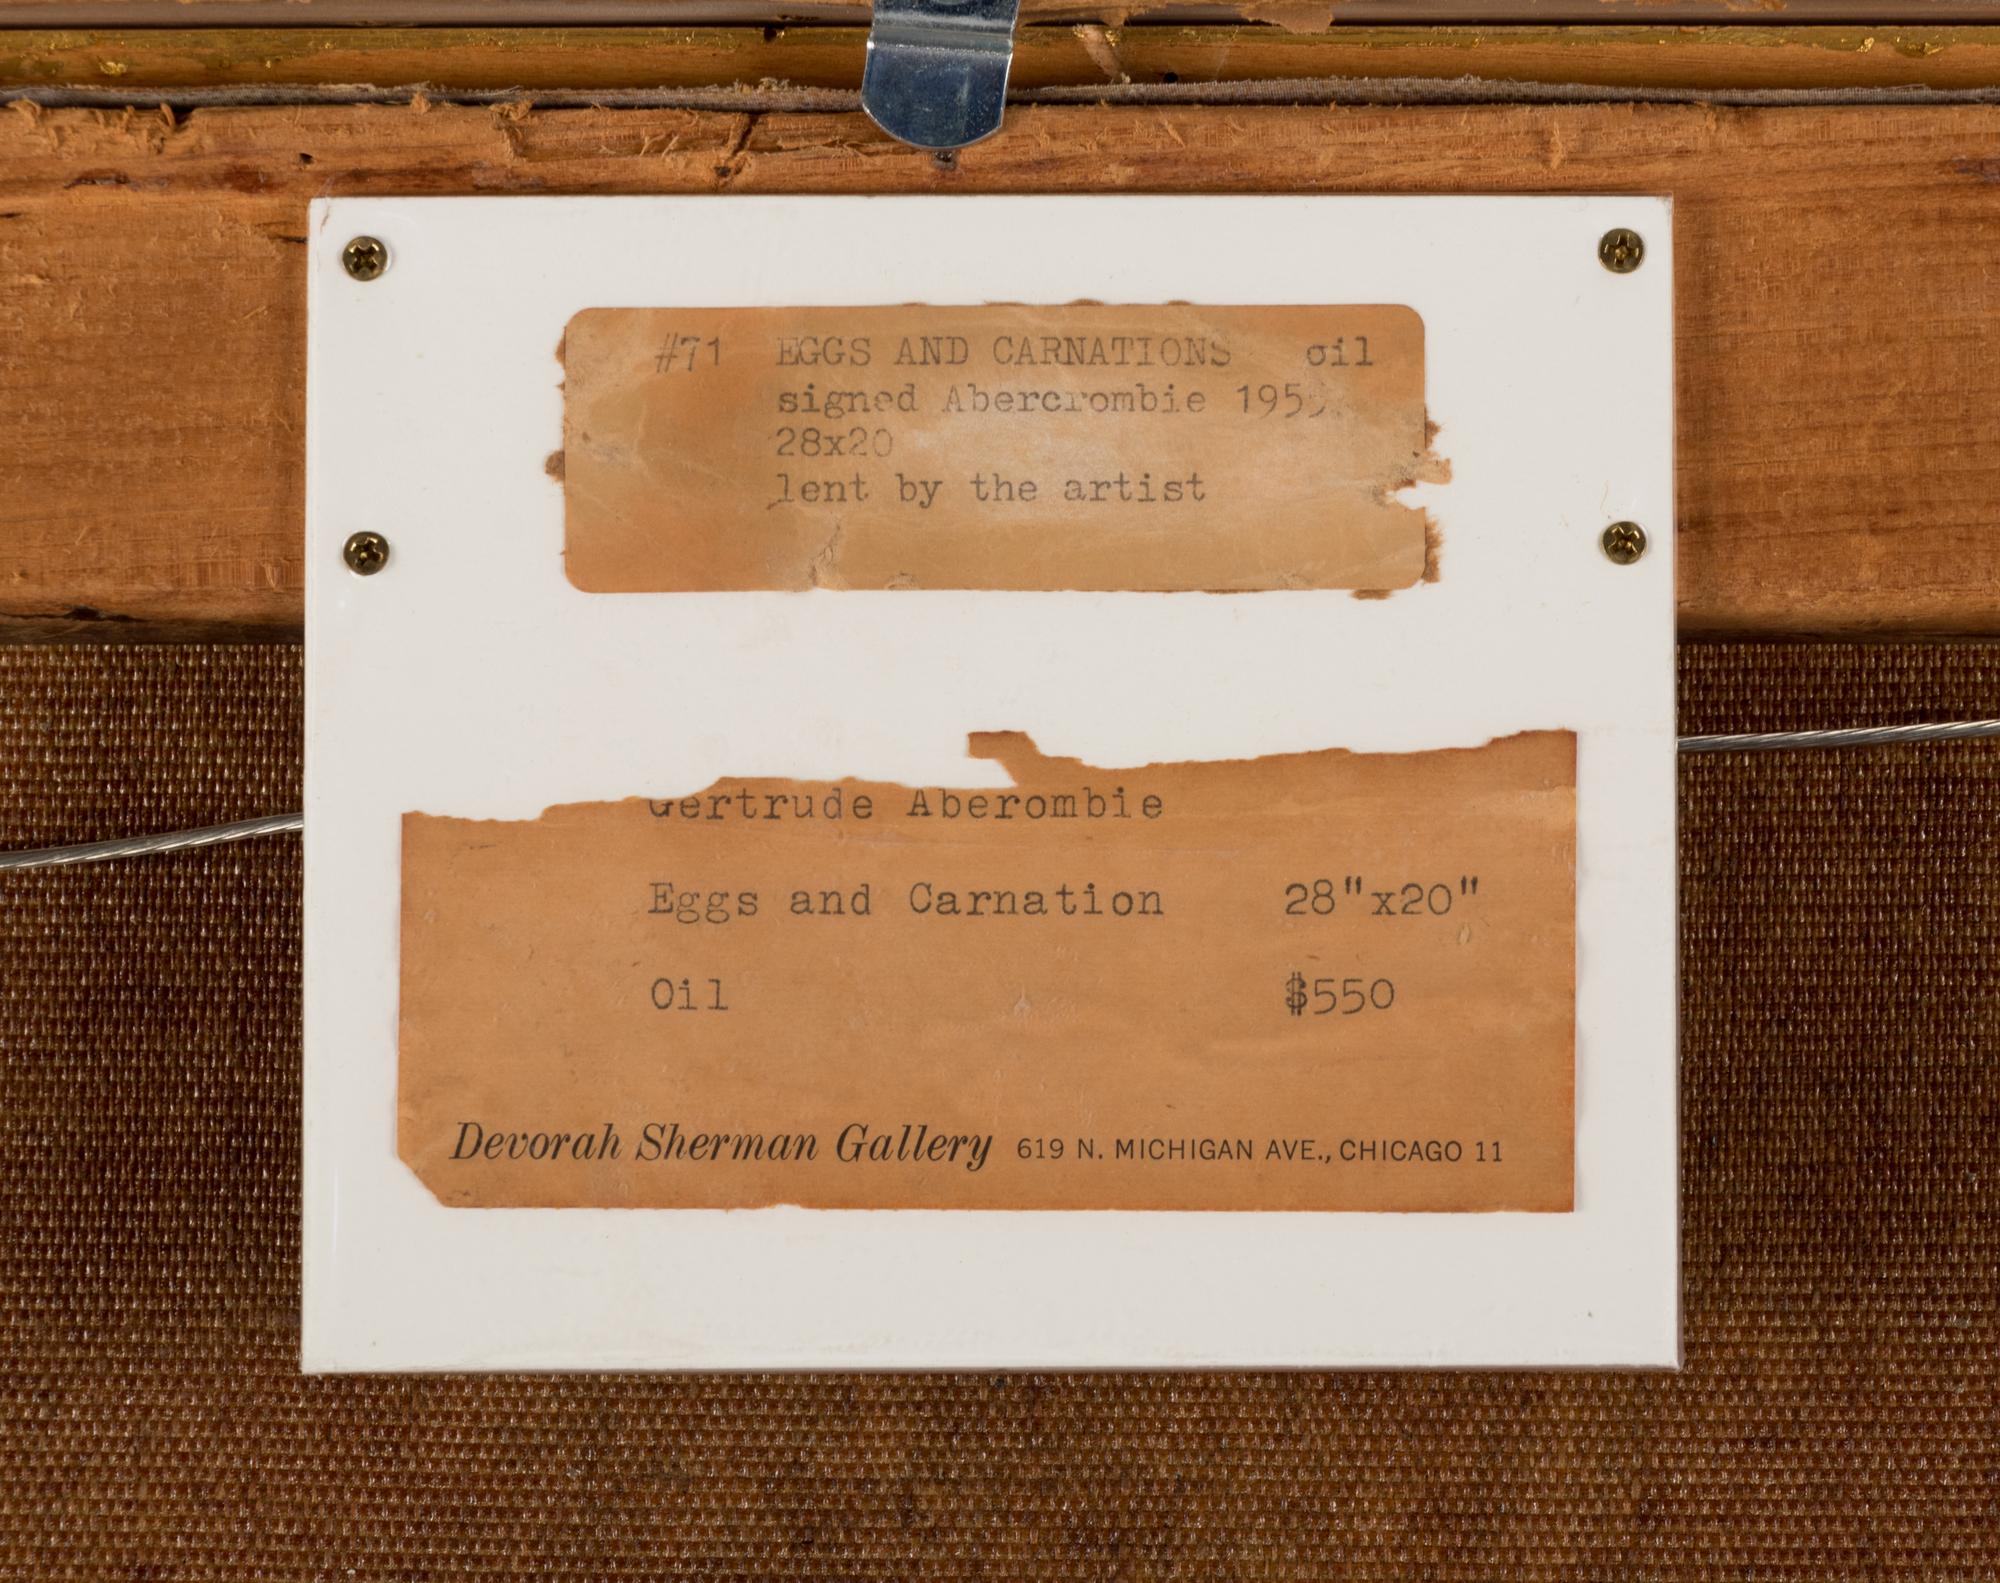 #71 EGGS AND CARNATIONS oil
signed Abercrombie
28x20
lent by the artist
Gertrude Aberombie
Eggs and Carnation 28"x20"
Oil $550
Devorah Sherman Gallery 619 N. MICHIGAN AVE., CHICAGO 11